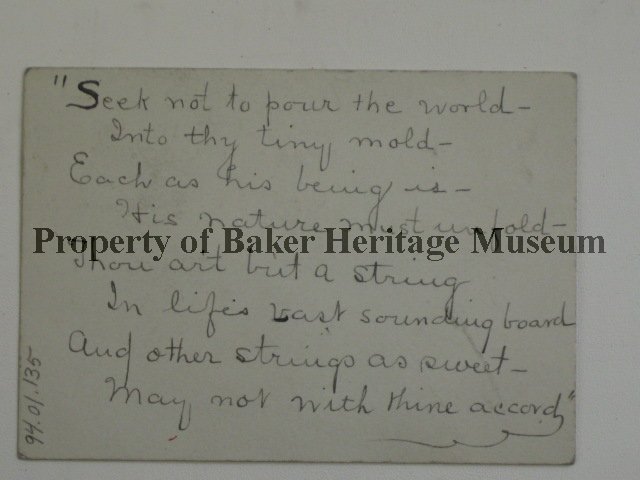 "Seek not to pour the world-
Into thy tiny mold-
Each as his being is-
His nature must unfold-
Property of Baker Heritage Museum
Thou art but a string
In life's vast sounding board
And other strings as sweet-
May not with thine accord"
94.01.135